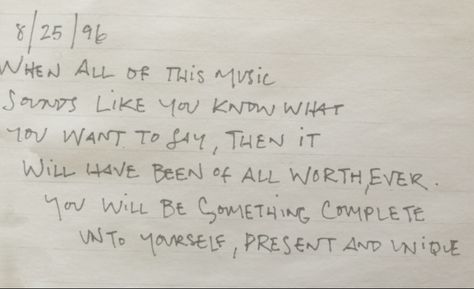 8/25/96
WHEN ALL OF THIS MUSIC
SOUNDS LIKE YOU KNOW WHAT
YOU WANT TO SAY, THEN IT
WILL HAVE BEEN OF ALL WORTH, EVER.
YOU WILL BE SOMETHING COMPLETE
UNTO YOURSELF, PRESENT AND UNIQUE